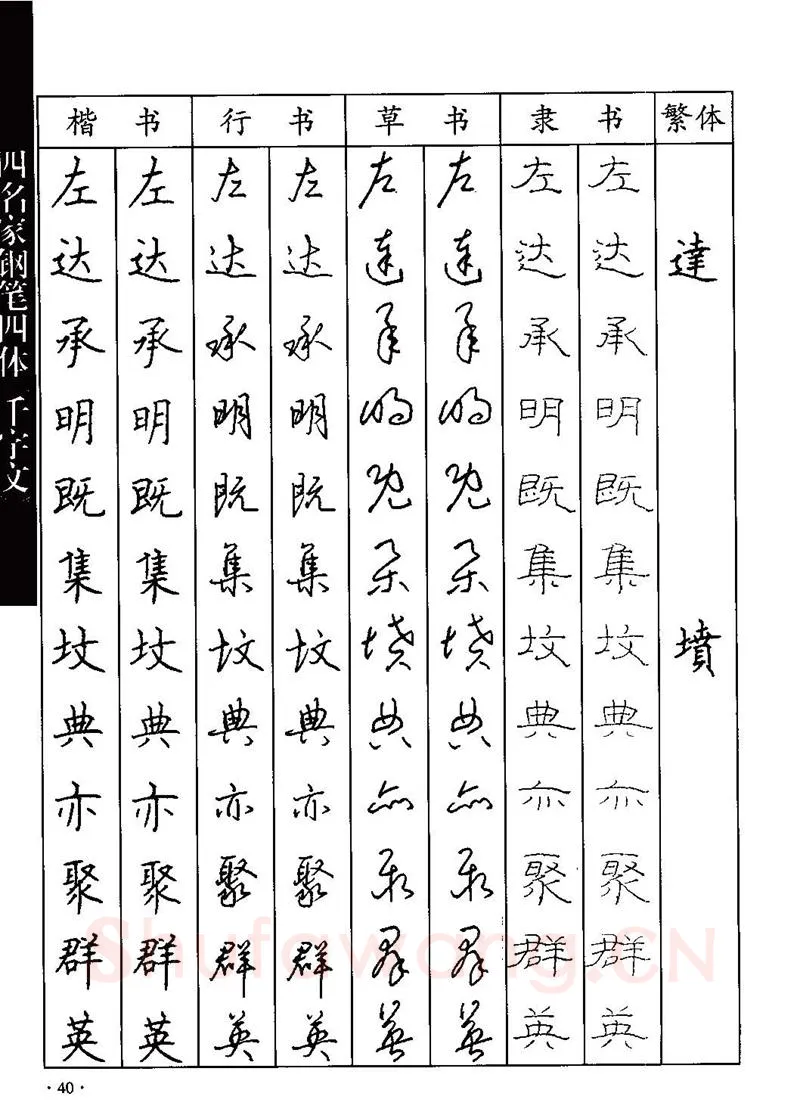 四名家钢笔四体 千字文
楷书 行书 草书 隶书 繁体
左 左 左 左 左 左 左 左
达 达 达 达 達 達 达 达 達
承 承 承 承 承 承 承 承
明 明 明 明 明 明 明 明
既 既 既 既 既 既 既 既
集 集 集 集 集 集 集 集
坟 坟 坟 坟 墳 墳 坟 坟 墳
典 典 典 典 典 典 典 典
亦 亦 亦 亦 亦 亦 亦 亦
聚 聚 聚 聚 聚 聚 聚 聚
群 群 群 群 群 群 群 群
英 英 英 英 英 英 英 英
Shufawang.CN
·40·